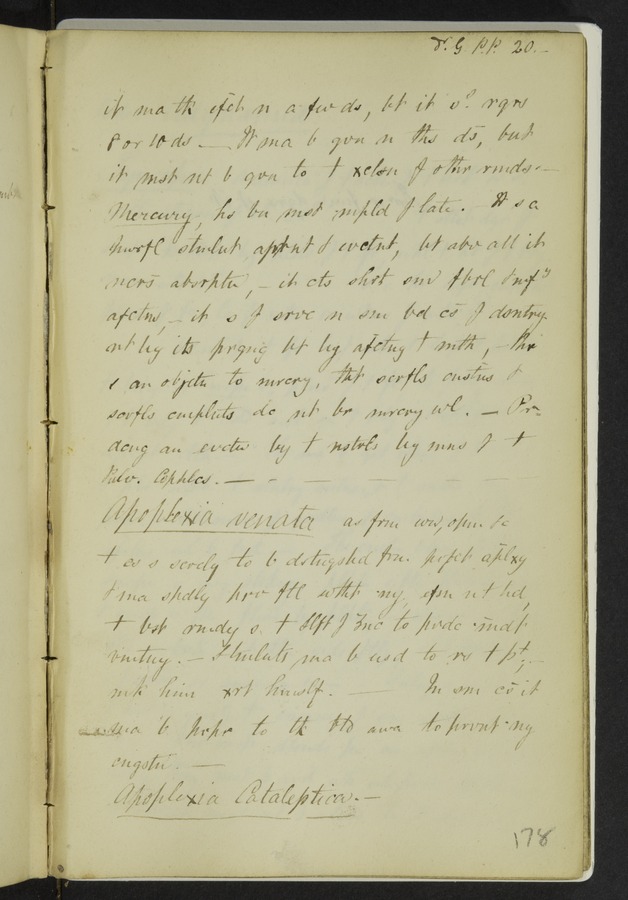 v. G. P.P. 20.—
it ma tk efct n a few ds, bt it s? rqrs
8 or 10 ds — It ma b gvn n ths ds, but
it mst nt b gvn to t xclsn f othr rmds.—
Mercury, hs bn mst mpld f late. — It s a
pwrfl stmlnt, & evctnt, bt abv all it
ncrs absrptn, — it cts shrt sm fbrl & nf
afctns, — it s f srvc n sm bd cs f dsntry
nt by its prgng bt by afctng t mth, — thr
s an objctn to mrcry, tht scrfls cnsttns &
scrfls cmplnts do nt br mrcry wl. — Pr=
dcng an evctn by t nstrls by mns f t
Pulv. Cephlcs. — — — — — —
Apoplexia venata as frm
t cs s scrcly to b dstngshd frm prfct aplxy
& ma spdly prv ftl wtht ny,
t bst rmdy s t Slft f Znc to prdc mdt
vmtng. — Stmlnts ma b usd to rs t pt, —
mk him xrt himslf. — In sm cs it
ma b prpr to tk bld awa to prvnt ny
cngstn. —
Apoplexia Cataleptica. —
178